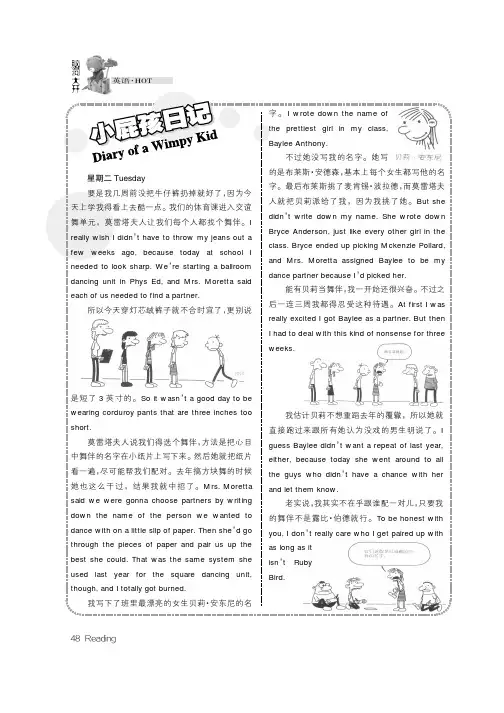 脑洞大开
英语·HOT
小屁孩日记
Diary of a Wimpy Kid
星期二 Tuesday
要是我几周前没把牛仔裤扔掉就好了,因为今
天上学我得看上去酷一点。我们的体育课进入交谊
舞单元,莫雷塔夫人让我们每个人都找个舞伴。I
really wish I didn't have to throw my jeans out a
few weeks ago, because today at school I
needed to look sharp. We're starting a ballroom
dancing unit in Phys Ed, and Mrs. Moretta said
each of us needed to find a partner.
所以今天穿灯芯绒裤子就不合时宜了,更别说
是短了3英寸的。So it wasn't a good day to be
wearing corduroy pants that are three inches too
short.
莫雷塔夫人说我们得选个舞伴,方法是把心目
中舞伴的名字在小纸片上写下来。然后她就把纸片
看一遍,尽可能帮我们配对。去年搞方块舞的时候
她也这么干过,结果我就中招了。Mrs. Moretta
said we were gonna choose partners by writing
down the name of the person we wanted to
dance with on a little slip of paper. Then she'd go
through the pieces of paper and pair us up the
best she could. That was the same system she
used last year for the square dancing unit,
though, and I totally got burned.
我写下了班里最漂亮的女生贝莉·安东尼的名
字。I wrote down the name of
the prettiest girl in my class,
Baylee Anthony.
贝莉·安东尼
不过她没写我的名字。她写
的是布莱斯·安德森,基本上每个女生都写他的名
字。最后布莱斯挑了麦肯锡·波拉德,而莫雷塔夫
人就把贝莉派给了我,因为我挑了她。But she
didn't write down my name. She wrote down
Bryce Anderson, just like every other girl in the
class. Bryce ended up picking Mckenzie Pollard,
and Mrs. Moretta assigned Baylee to be my
dance partner because I'd picked her.
能有贝莉当舞伴,我一开始还很兴奋。不过之
后一连三周我都得忍受这种待遇。At first I was
really excited I got Baylee as a partner. But then
I had to deal with this kind of nonsense for three
weeks.
我估计贝莉不想重蹈去年的覆辙,所以她就
直接跑过来跟所有她认为没戏的男生明说了。I
guess Baylee didn't want a repeat of last year,
either, because today she went around to all
the guys who didn't have a chance with her
and let them know.
老实说,我其实不在乎跟谁配一对儿,只要我
的舞伴不是露比·伯德就行。To be honest with
you, I don't really care who I get paired up with
as long as it
isn't Ruby
Bird.
48 Reading